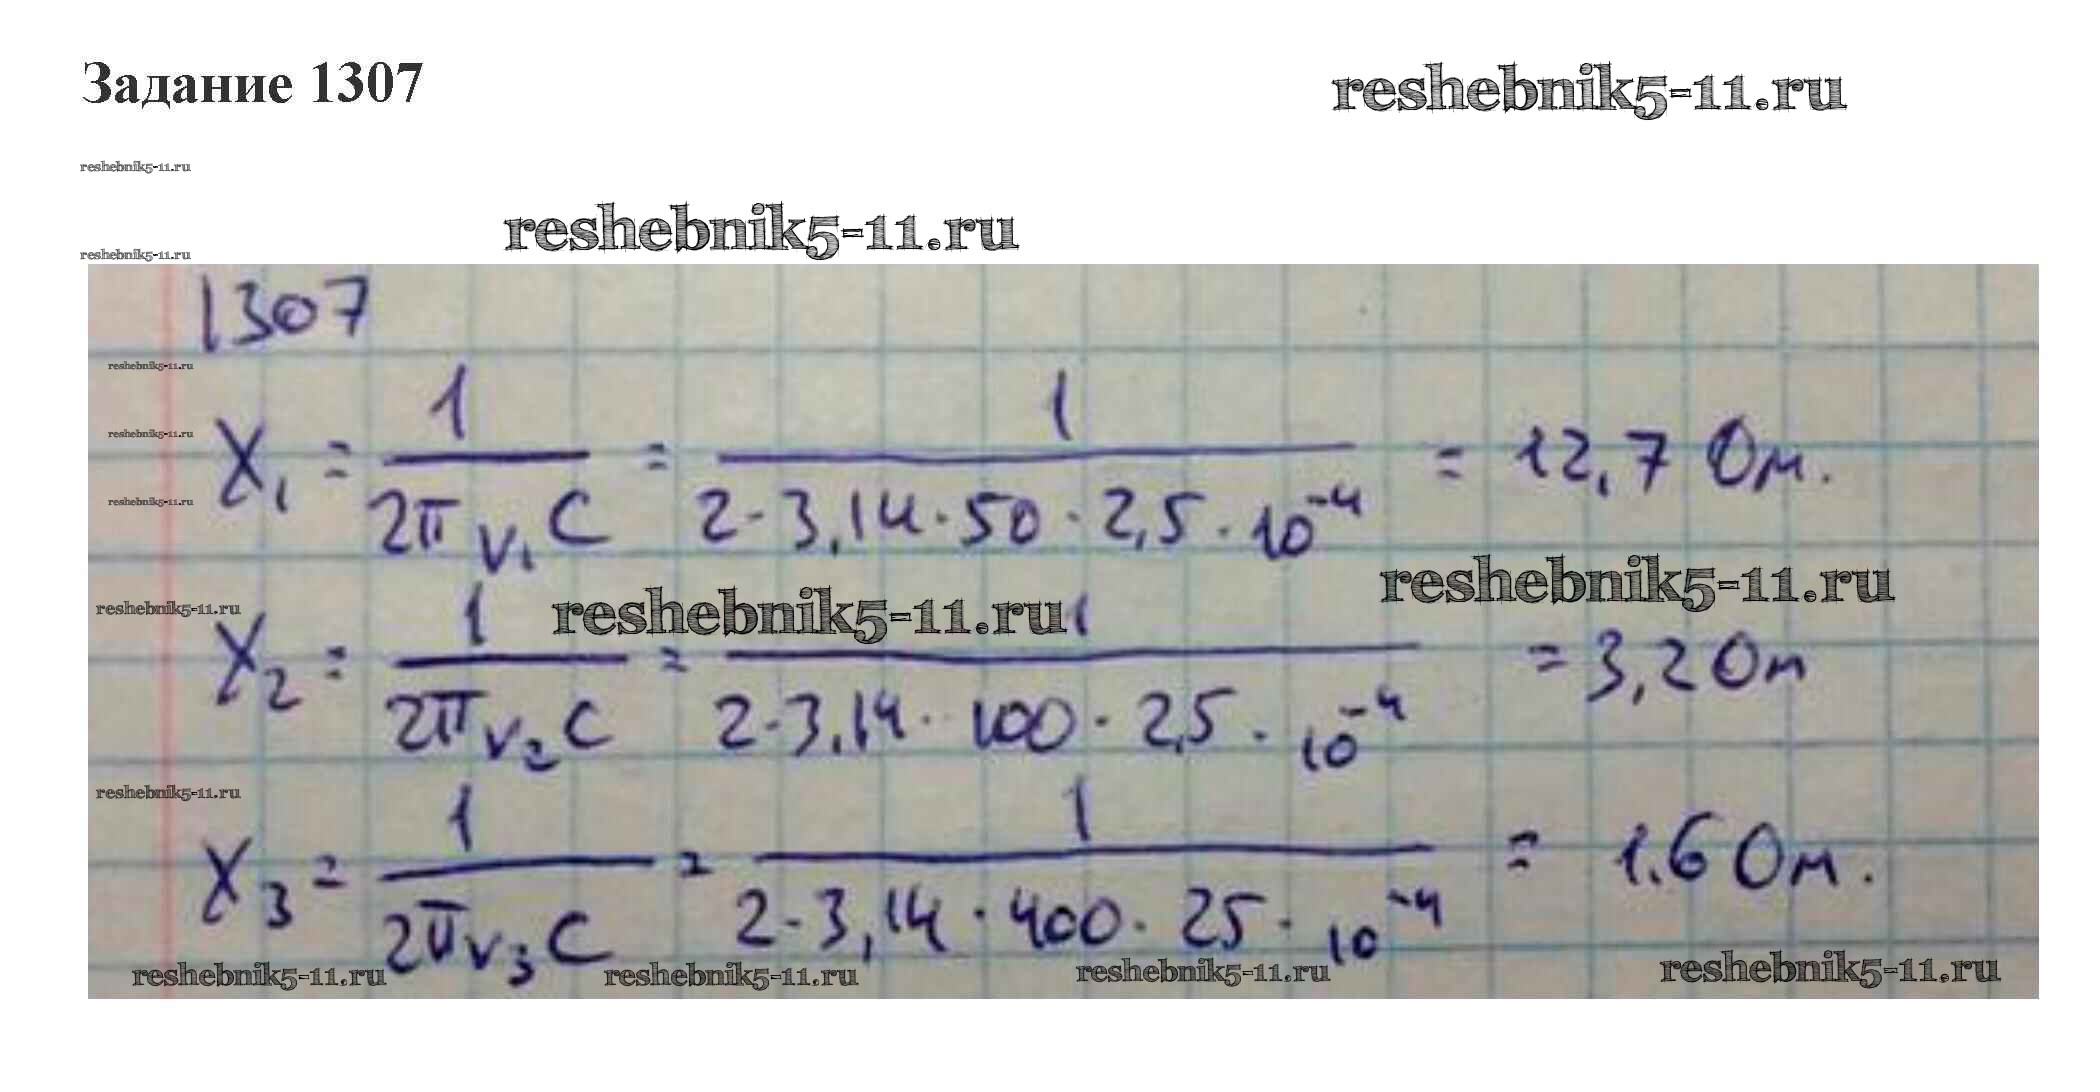 Задание 1307
reshebnik5-11.ru
reshebnik5-11.ru
reshebnik5-11.ru
reshebnik5-11.ru
1307
reshebnik5-11.ru
X₁ = 1/(2π ν₁ C) = 1/(2·3,14·50·2,5·10⁻⁴) = 12,7 Ом.
reshebnik5-11.ru
reshebnik5-11.ru
reshebnik5-11.ru
reshebnik5-11.ru
reshebnik5-11.ru
X₂ = 1/(2π ν₂ C) = 1/(2·3,14·100·2,5·10⁻⁴) = 3,2 Ом
reshebnik5-11.ru
X₃ = 1/(2π ν₃ C) = 1/(2·3,14·400·25·10⁻⁴) = 1.6 Ом.
reshebnik5-11.ru
reshebnik5-11.ru
reshebnik5-11.ru
reshebnik5-11.ru